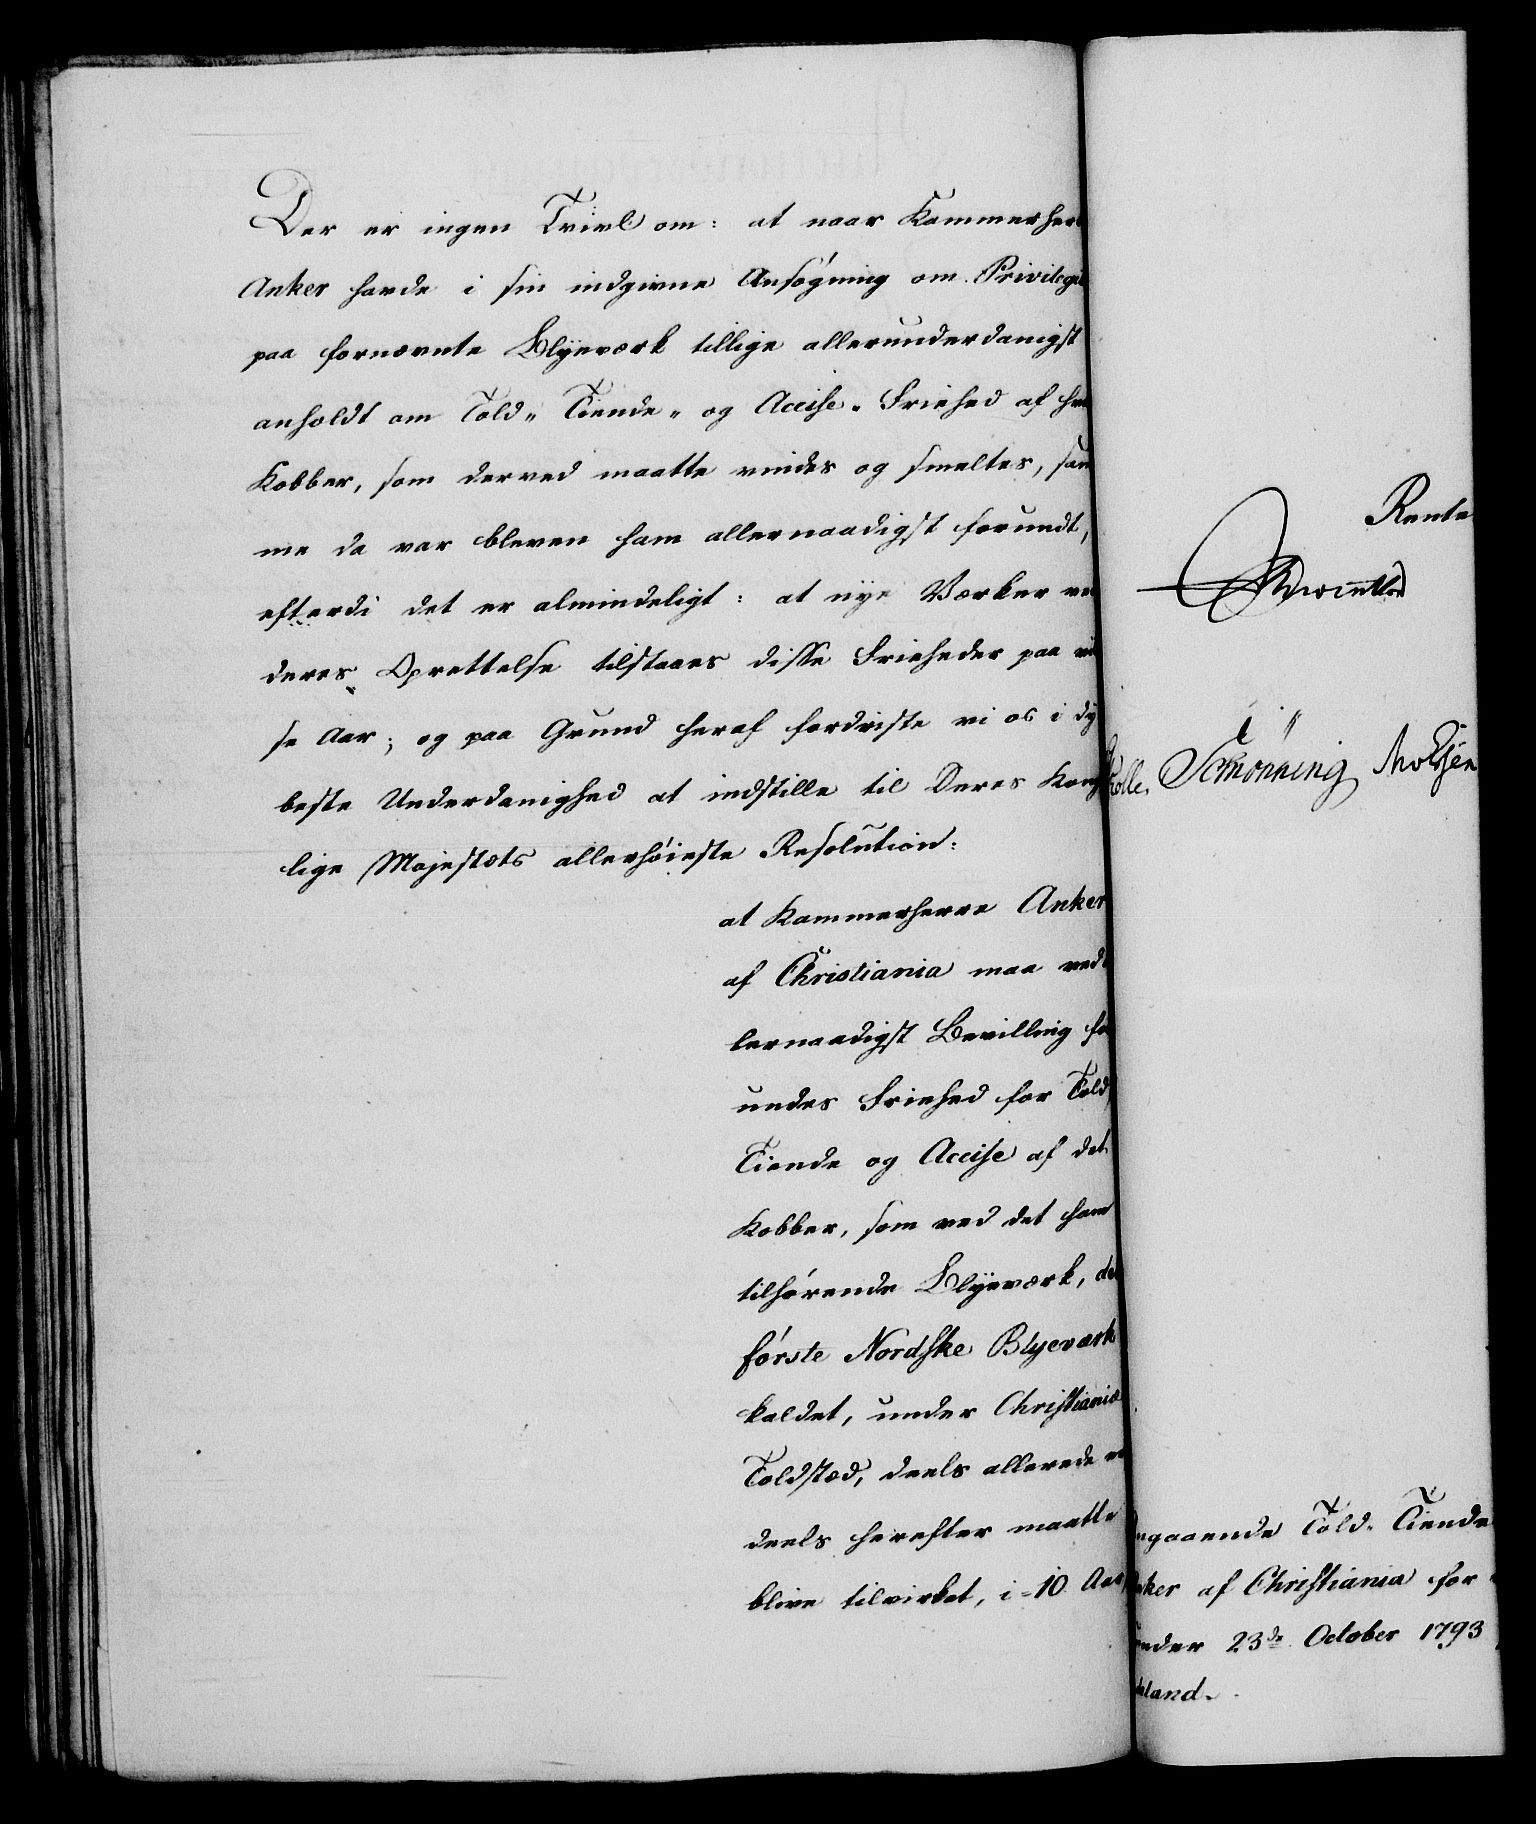 Der er ingen Tvivl om: at naar Kammerher
Anker havde i sin indgivne Ansøgning om Privilegi
paa fornævnte Blyeværk tillige allerunderdanigst
anholdt om Told„ Tiende„ og Accise„ Friehed af
Kobber, som derved maatte vindes og smeltes, sam
me da var bleven ham allernaadigst forundt,
efterdi det er almindeligt: at nye Værker ve
deres Oprettelse tilstaaes disse Frieheder paa vi
se Aar; og paa Grund heraf fordriste vi os i dy
beste Underdanighed at indstille til Deres Kong
lige Majestæts allerhøieste Resolution:
at Kammerherre Anker
af Christiania maa ved
lernaadigst Bevilling fo
undes Friehed for Told,
Tiende og Accise af det
Kobber, som ved det ham
tilhørende Blyeværk, det
første Nordske Blyeværk
kaldet, under Christiania
Toldsted, deels allerede
deels herefter maatte
blive tilvirket, i 10 Aar,
Rente
Schønning
ngaaende Told„ Tiende
ker af Christiania for
nder 23de October 1793
land.